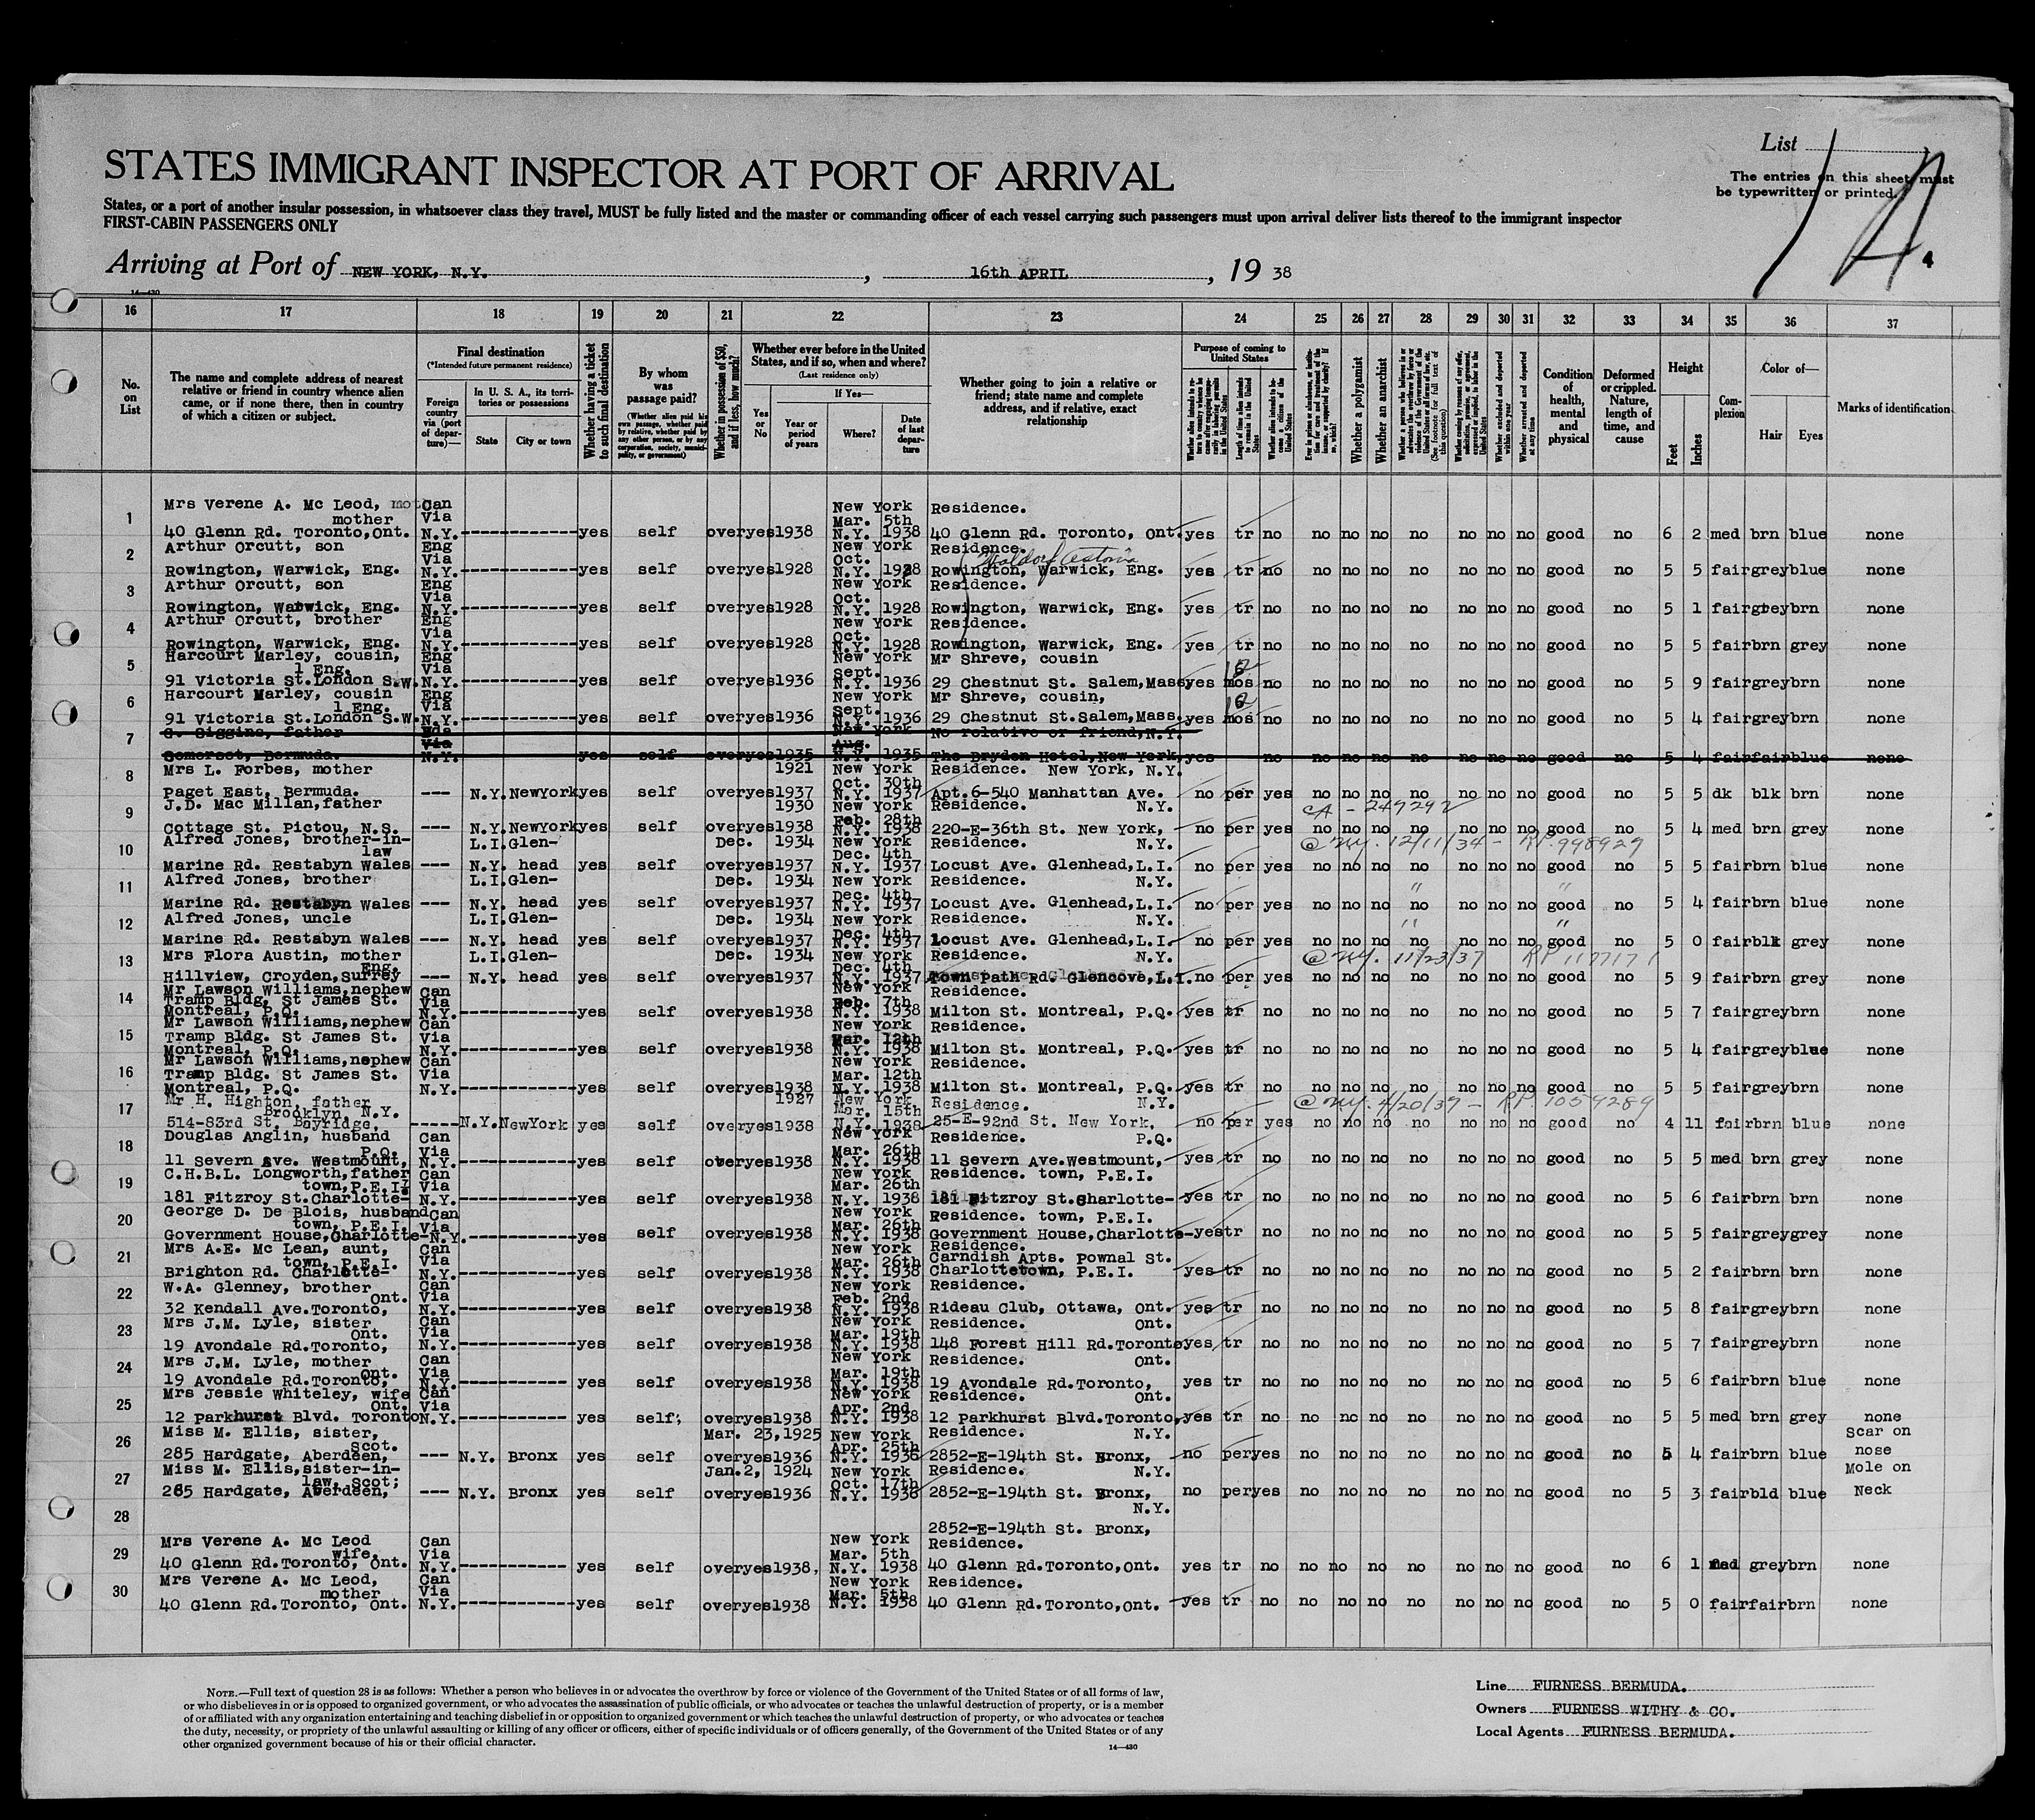 List
The entries on this sheet must
be typewritten or printed.
1 A.
STATES IMMIGRANT INSPECTOR AT PORT OF ARRIVAL
States, or a port of another insular possession, in whatsoever class they travel, MUST be fully listed and the master or commanding officer of each vessel carrying such passengers must upon arrival deliver lists thereof to the immigrant inspector
FIRST-CABIN PASSENGERS ONLY
Arriving at Port of NEW YORK, N.Y. , 16th APRIL , 19 38
14—430
16 17 18 19 20 21 22 23 24 25 26 27 28 29 30 31 32 33 34 35 36 37
No. on List
The name and complete address of nearest relative or friend in country whence alien came, or if none there, then in country of which a citizen or subject.
Final destination
(*Intended future permanent residence)
Foreign country via (port of departure)—
In U. S. A., its territories or possessions
State City or town
Whether having a ticket to such final destination
By whom was passage paid?
(Whether alien paid his own passage, whether paid by relative, whether paid by any other person, or by any corporation, society, municipality, or government)
Whether in possession of $50, and if less, how much?
Whether ever before in the United States, and if so, when and where?
(Last residence only)
Yes or No
If Yes—
Year or period of years Where? Date of last departure
Whether going to join a relative or friend; state name and complete address, and if relative, exact relationship
Purpose of coming to United States
Whether a polygamist
Whether an anarchist
Condition of health, mental and physical
Deformed or crippled. Nature, length of time, and cause
Height
Feet Inches
Complexion
Color of—
Hair Eyes
Marks of identification
1 Mrs Verene A. Mc Leod, mother Can Via N.Y. New York Mar. 5th Residence.
40 Glenn Rd. Toronto,Ont. yes self over yes 1938 N.Y. 1938 40 Glenn Rd. Toronto, Ont. yes tr no no no no no no no no good no 6 2 med brn blue none
2 Arthur Orcutt, son Eng Via N.Y. New York Oct. Residence. Waldorf Astoria
Rowington, Warwick, Eng. yes self over yes 1928 N.Y. 1928 Rowington, Warwick, Eng. yes tr no no no no no no no no good no 5 5 fair grey blue none
3 Arthur Orcutt, son Eng Via N.Y. New York Oct. Residence.
Rowington, Warwick, Eng. yes self over yes 1928 N.Y. 1928 Rowington, Warwick, Eng. yes tr no no no no no no no no good no 5 1 fair grey brn none
4 Arthur Orcutt, brother Eng Via N.Y. New York Oct. Residence.
Rowington, Warwick, Eng. yes self over yes 1928 N.Y. 1928 Rowington, Warwick, Eng. yes tr no no no no no no no no good no 5 5 fair brn grey none
5 Harcourt Marley, cousin, 1 Eng. Eng Via N.Y. New York Sept. Mr Shreve, cousin 12
91 Victoria St.London S.W. yes self over yes 1936 N.Y. 1936 29 Chestnut St. Salem,Mass, yes mos no no no no no no no no good no 5 9 fair grey brn none
6 Harcourt Marley, cousin 1 Eng. Eng Via N.Y. New York Sept. Mr Shreve, cousin,
91 Victoria St.London S.W. yes self over yes 1936 N.Y. 1936 29 Chestnut St.Salem,Mass. yes mos no no no no no no no no good no 5 4 fair grey brn none
7 Siggins, father Via N.Y. New York Aug. No relative or friend,N.Y.
Somerset, Bermuda. yes self over yes 1935 N.Y. 1935 The Bryden Hotel,New York, yes no no no no no no no no good no 5 4 fair fair blue none
8 Mrs L. Forbes, mother 1921 New York Oct. 30th Residence. New York, N.Y.
Paget East, Bermuda. --- N.Y. NewYork yes self over yes 1937 N.Y. 1937 Apt.6-540 Manhattan Ave. no per yes no no no no no no no good no 5 5 dk blk brn none
9 J.D. Mac Millan,father 1930 New York Feb. 28th Residence. N.Y. 249292
Cottage St. Pictou, N.S. --- N.Y. NewYork yes self over yes 1938 N.Y. 1938 220-E-36th St. New York, no per yes no no no no no no no good no 5 4 med brn grey none
10 Alfred Jones, brother-in-law L.I. Glen- Dec. 1934 New York Dec. 4th Residence. N.Y. @ NY. 12/11/34 - RP. 998929
Marine Rd. Restabyn Wales --- N.Y. head yes self over yes 1937 N.Y. 1937 Locust Ave. Glenhead,L.I. no per yes no no no no no no no good no 5 5 fair brn blue none
11 Alfred Jones, brother L.I. Glen- Dec. 1934 New York Dec. 4th Residence. N.Y. " "
Marine Rd. Restabyn Wales --- N.Y. head yes self over yes 1937 N.Y. 1937 Locust Ave. Glenhead,L.I. no per yes no no no no no no no good no 5 4 fair brn blue none
12 Alfred Jones, uncle L.I. Glen- Dec. 1934 New York Dec. 4th Residence. N.Y. " "
Marine Rd. Restabyn Wales --- N.Y. head yes self over yes 1937 N.Y. 1937 Locust Ave. Glenhead,L.I. no per yes no no no no no no no good no 5 0 fair blk grey none
13 Mrs Flora Austin, mother Eng. L.I. Glen- Dec. 1934 New York Dec. 4th Residence. N.Y. @ NY. 11/23/37 RP
Hillview, Croyden,Surrey --- N.Y. head yes self over yes 1937 N.Y. 1937 Town Path Rd. Glencove,L.I. no per yes no no no no no no no good no 5 9 fair brn grey none
14 Mr Lawson Williams,nephew Can Via N.Y. New York Feb. 7th Residence.
Tramp Bldg, St James St.
Montreal, P.Q. yes self over yes 1938 N.Y. 1938 Milton St. Montreal, P.Q. yes tr no no no no no no no no good no 5 7 fair grey brn none
15 Mr Lawson Williams,nephew Can Via N.Y. New York Mar. 12th Residence.
Tramp Bldg. St James St.
Montreal, P.Q. yes self over yes 1938 N.Y. 1938 Milton St. Montreal, P.Q. yes tr no no no no no no no no good no 5 4 fair grey blue none
16 Mr Lawson Williams,nephew Can Via N.Y. New York Mar. 12th Residence.
Tramp Bldg. St James St.
Montreal, P.Q. yes self over yes 1938 N.Y. 1938 Milton St. Montreal, P.Q. yes tr no no no no no no no no good no 5 5 fair grey brn none
17 Mr H. Highton, father Brooklyn, N.Y. 1927 New York Mar. 15th Residence. N.Y. @ NY. 4/20/39 - RP. 1059289
514-83rd St. Bayridge. ----- N.Y. NewYork yes self over yes 1938 N.Y. 1938 25-E-92nd St. New York, no per yes no no no no no no no good no 4 11 fair brn blue none
18 Douglas Anglin, husband P.Q. Can Via N.Y. New York Mar. 26th Residence. P.Q.
11 Severn Ave. Westmount, yes self over yes 1938 N.Y. 1938 11 Severn Ave.Westmount, yes tr no no no no no no no no good no 5 5 med brn grey none
19 C.H.B.L. Longworth,father town,P.E.I. Can Via N.Y. New York Mar. 26th Residence. town, P.E.I.
181 Fitzroy St.Charlotte- yes self over yes 1938 N.Y. 1938 181 Fitzroy St.Charlotte- yes tr no no no no no no no no good no 5 6 fair brn brn none
20 George D. De Blois, husband town, P.E.I. Can Via N.Y. New York Mar. 26th Residence. town, P.E.I.
Government House,Charlotte- yes self over yes 1938 N.Y. 1938 Government House,Charlotte- yes tr no no no no no no no no good no 5 5 fair grey grey none
21 Mrs A.E. Mc Lean, aunt, town, P.E.I. Can Via N.Y. New York Mar. 26th Residence. Carndish Apts. Pownal St.
Brighton Rd. Charlotte- yes self over yes 1938 N.Y. 1938 Charlottetown, P.E.I. yes tr no no no no no no no no good no 5 2 fair brn brn none
22 W.A. Glenney, brother Ont. Can Via N.Y. New York Feb. 2nd Residence.
32 Kendall Ave.Toronto, yes self over yes 1938 N.Y. 1938 Rideau Club, Ottawa, Ont. yes tr no no no no no no no no good no 5 8 fair grey brn none
23 Mrs J.M. Lyle, sister Ont. Can Via N.Y. New York Mar. 19th Residence. Ont.
19 Avondale Rd.Toronto, yes self over yes 1938 N.Y. 1938 148 Forest Hill Rd.Toronto yes tr no no no no no no no no good no 5 7 fair grey brn none
24 Mrs J.M. Lyle, mother Ont. Can Via N.Y. New York Mar. 19th Residence. Ont.
19 Avondale Rd.Toronto, yes self over yes 1938 N.Y. 1938 19 Avondale Rd.Toronto, yes tr no no no no no no no no good no 5 6 fair brn blue none
25 Mrs Jessie Whiteley, wife Ont. Can Via N.Y. New York Apr. 2nd Residence. Ont.
12 Parkhurst Blvd. Toronto yes self over yes 1938 N.Y. 1938 12 Parkhurst Blvd.Toronto, yes tr no no no no no no no no good no 5 5 med brn grey none
26 Miss M. Ellis, sister, Scot. Mar. 23,1925 New York Apr. 25th Residence. N.Y. Scar on
285 Hardgate, Aberdeen, --- N.Y. Bronx yes self over yes 1936 N.Y. 1936 2852-E-194th St. Bronx, no per yes no no no no no no no good no 5 4 fair brn blue nose
27 Miss M. Ellis,sister-in-law, Scot; Jan.2, 1924 New York Oct. 17th Residence. N.Y. Mole on
285 Hardgate, Aberdeen, --- N.Y. Bronx yes self over yes 1936 N.Y. 1936 2852-E-194th St. Bronx, no per yes no no no no no no no good no 5 3 fair bld blue Neck
28 N.Y.
2852-E-194th St. Bronx,
29 Mrs Verene A. Mc Leod wife, Can Via N.Y. New York Mar. 5th Residence.
40 Glenn Rd.Toronto, Ont. yes self over yes 1938, N.Y. 1938 40 Glenn Rd.Toronto,Ont. yes tr no no no no no no no no good no 6 1 med grey brn none
30 Mrs Verene A. Mc Leod, mother Can Via N.Y. New York Mar. 5th Residence.
40 Glenn Rd.Toronto, Ont. yes self over yes 1938 N.Y. 1938 40 Glenn Rd.Toronto,Ont. yes tr no no no no no no no no good no 5 0 fair fair brn none
NOTE.—Full text of question 28 is as follows: Whether a person who believes in or advocates the overthrow by force or violence of the Government of the United States or of all forms of law,
or who disbelieves in or is opposed to organized government, or who advocates the assassination of public officials, or who advocates or teaches the unlawful destruction of property, or is a member
of or affiliated with any organization entertaining and teaching disbelief in or opposition to organized government or which teaches the unlawful destruction of property, or who advocates or teaches
the duty, necessity, or propriety of the unlawful assaulting or killing of any officer or officers, either of specific individuals or of officers generally, of the Government of the United States or of any
other organized government because of his or their official character.
14—430
Line FURNESS BERMUDA.
Owners FURNESS WITHY & CO.
Local Agents FURNESS BERMUDA.